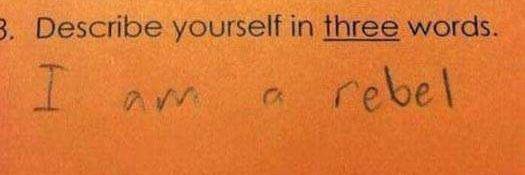 3. Describe yourself in three words.
I am a rebel